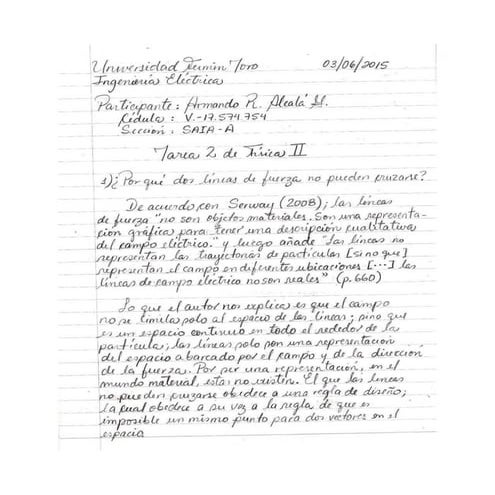 Universidad Fermín Toro 03/06/2015
Ingeniería Eléctrica
Participante: Armando R. Alcalá H.
Cédula: V.-17.574.754
Sección: SAIA-A
Tarea 2 de Física II
1)¿Por qué dos líneas de fuerza no pueden cruzarse?
De acuerdo con Serway (2008); las líneas
de fuerza "no son objetos materiales. Son una representa-
ción gráfica para tener una descripción cualitativa
del campo eléctrico." y luego añade "Las líneas no
representan las trayectorias de partículas [sino que]
representan el campo en diferentes ubicaciones [...] las
líneas de campo eléctrico no son reales" (p.660)
Lo que el autor nos explica es que el campo
no se limita solo al espacio de las líneas; sino que
es un espacio continuo en todo el rededor de la
partícula; las líneas solo son una representación
del espacio abarcado por el campo y de la dirección
de la fuerza. Por ser una representación, en el
mundo material, estas no existen. El que las líneas
no pueden cruzarse obedece a una regla de diseño;
la cual obedece a su vez a la regla de que es
imposible un mismo punto para dos vectores en el
espacio